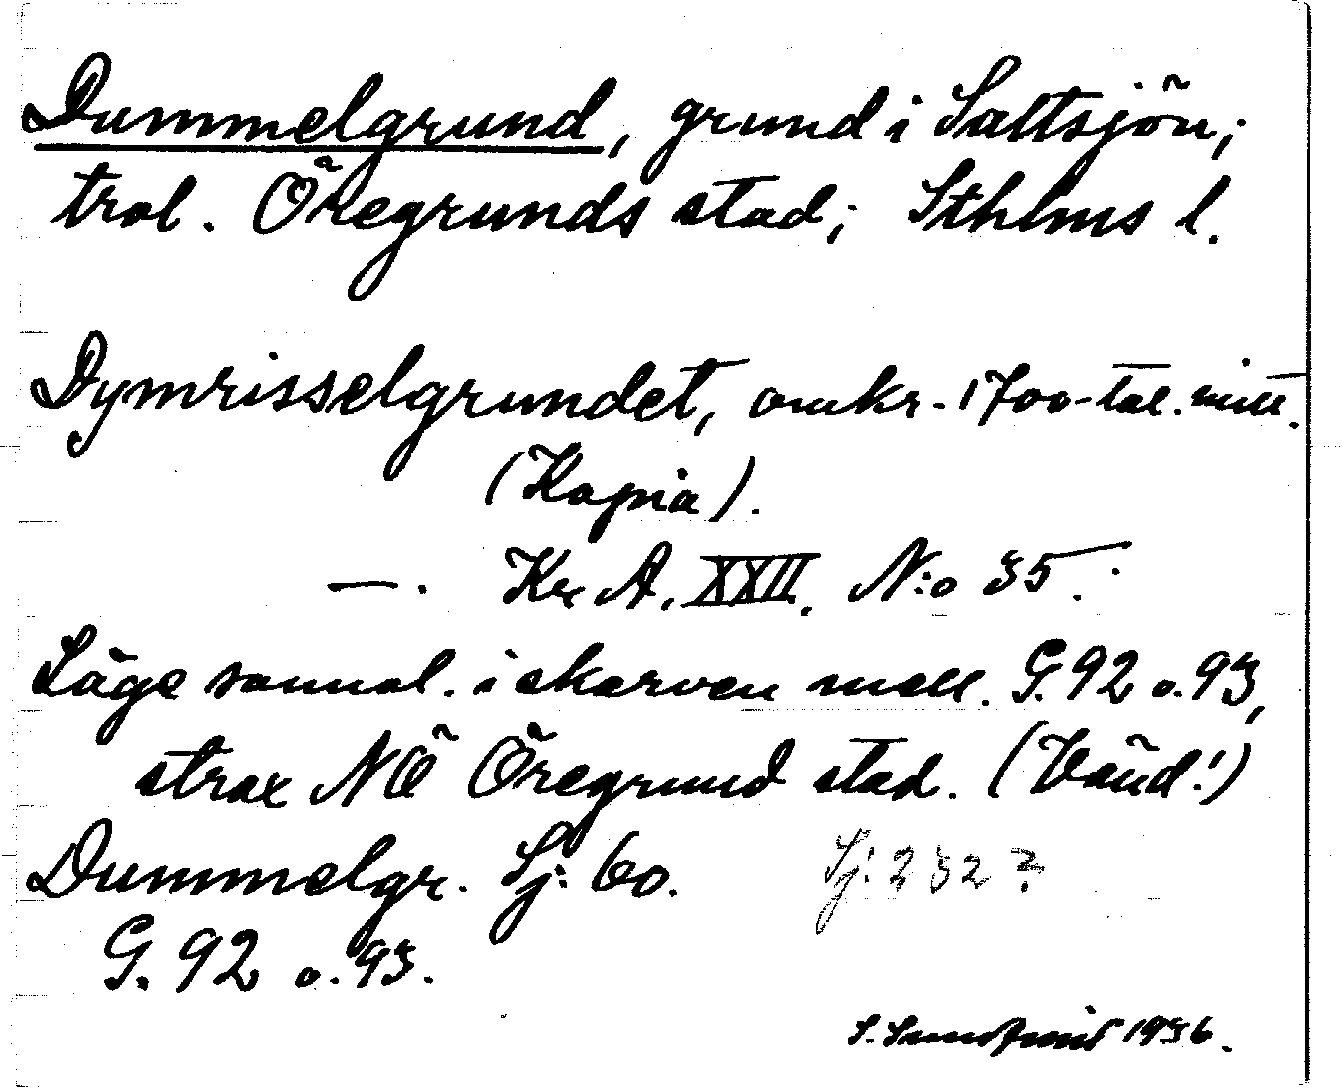 Dummelgrund, grund i Saltsjön;
trol. Öregrunds stad; Sthlms l.
Dymrisselgrundet, omkr. 1700-tal. mitt.
(Kopia).
—. Kr A. XXII. N:o 35.
Läge sannol. i skarven mell. G. 92 o. 93,
strax NÖ Öregrund stad. (Vänd!)
Dummelgr. Sj: 60. Sj: 232?
G. 92 o. 93.
S. 1936.